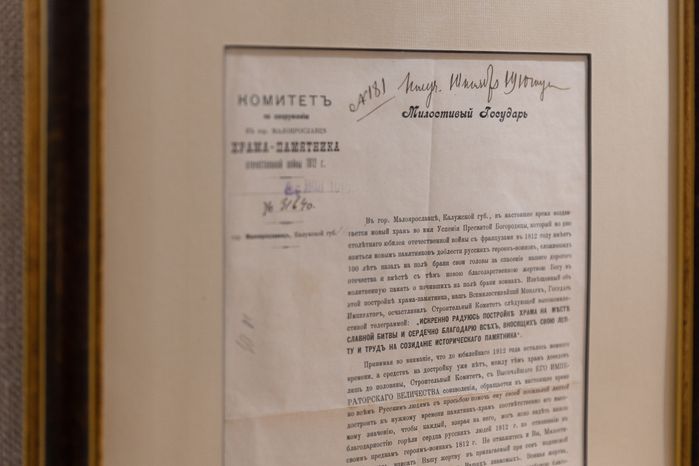 КОМИТЕТЪ
по сооруженію
въ гор. МАЛОЯРОСЛАВЦѢ
ХРАМА-ПАМЯТНИКА
отечественной войны 1812 г.
№
гор. Малоярославецъ, Калужской губ.
№ 181 Получ. 1910 года
Милостивый Государь
Въ гор. Малоярославцѣ, Калужской губ., въ настоящее время созда-
ется новый храмъ во имя Успенія Пресвятой Богородицы, который ко дню
столѣтняго юбилея отечественной войны съ французами въ 1812 году имѣетъ
явиться новымъ памятникомъ доблести русскихъ героевъ-воиновъ, сложившихъ
100 лѣтъ назадъ на полѣ брани свои головы за спасеніе нашего дорогого
отечества и вмѣстѣ съ тѣмъ новою благодарственною жертвою Богу въ
молитвенную память о почившихъ на полѣ брани воинахъ. Извѣщенный объ
этой постройкѣ храма-памятника, нашъ Всемилостивѣйшій Монархъ, Государь
Императоръ, осчастливилъ Строительный Комитетъ слѣдующей
телеграммой: „ИСКРЕННО РАДУЮСЬ ПОСТРОЙКѢ ХРАМА НА МѢСТѢ
СЛАВНОЙ БИТВЫ И СЕРДЕЧНО БЛАГОДАРЮ ВСѢХЪ, ВНОСЯЩИХЪ СВОЮ ЛЕП-
ТУ И ТРУДЪ НА СОЗИДАНІЕ ИСТОРИЧЕСКАГО ПАМЯТНИКА".
Принимая во вниманіе, что до юбилейнаго 1912 года осталось немного
времени, а средствъ на достройку уже нѣтъ, между тѣмъ храмъ доведенъ
лишь до половины, Строительный Комитетъ, съ Высочайшаго ЕГО ИМПЕ-
РАТОРСКАГО ВЕЛИЧЕСТВА соизволенія, обращается въ настоящее время
ко всѣмъ Русскимъ людямъ съ просьбою помочь ему своей посильной лептой
достроить къ нужному времени памятникъ-храмъ соотвѣтственно его высо-
кому значенію, чтобы каждый, взирая на него, могъ ясно видѣть какою
благодарностію горѣли сердца русскихъ людей 1912 г. по отношенію къ
своимъ предкамъ героямъ-воинамъ 1812 г. Не откажитесь и Вы, Милости-
Вашу жертву въ прилагаемый при семъ подписной
Вашихъ знакомыхъ. Всякая жертва,